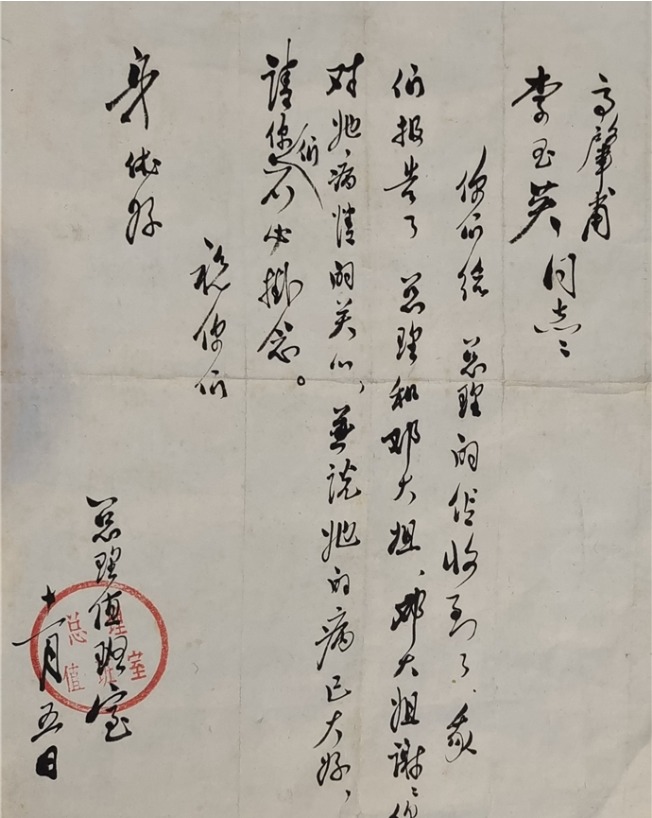 高肇甫
李玉英同志:
你们给 总理的信收到了、我
们报告了 总理和邓大姐、邓大姐谢〻
对她病情的关心,並说她的病已大好,
请你们不必掛念。
祝你们
身体好
总理值班室
十一月五日
总理值班室